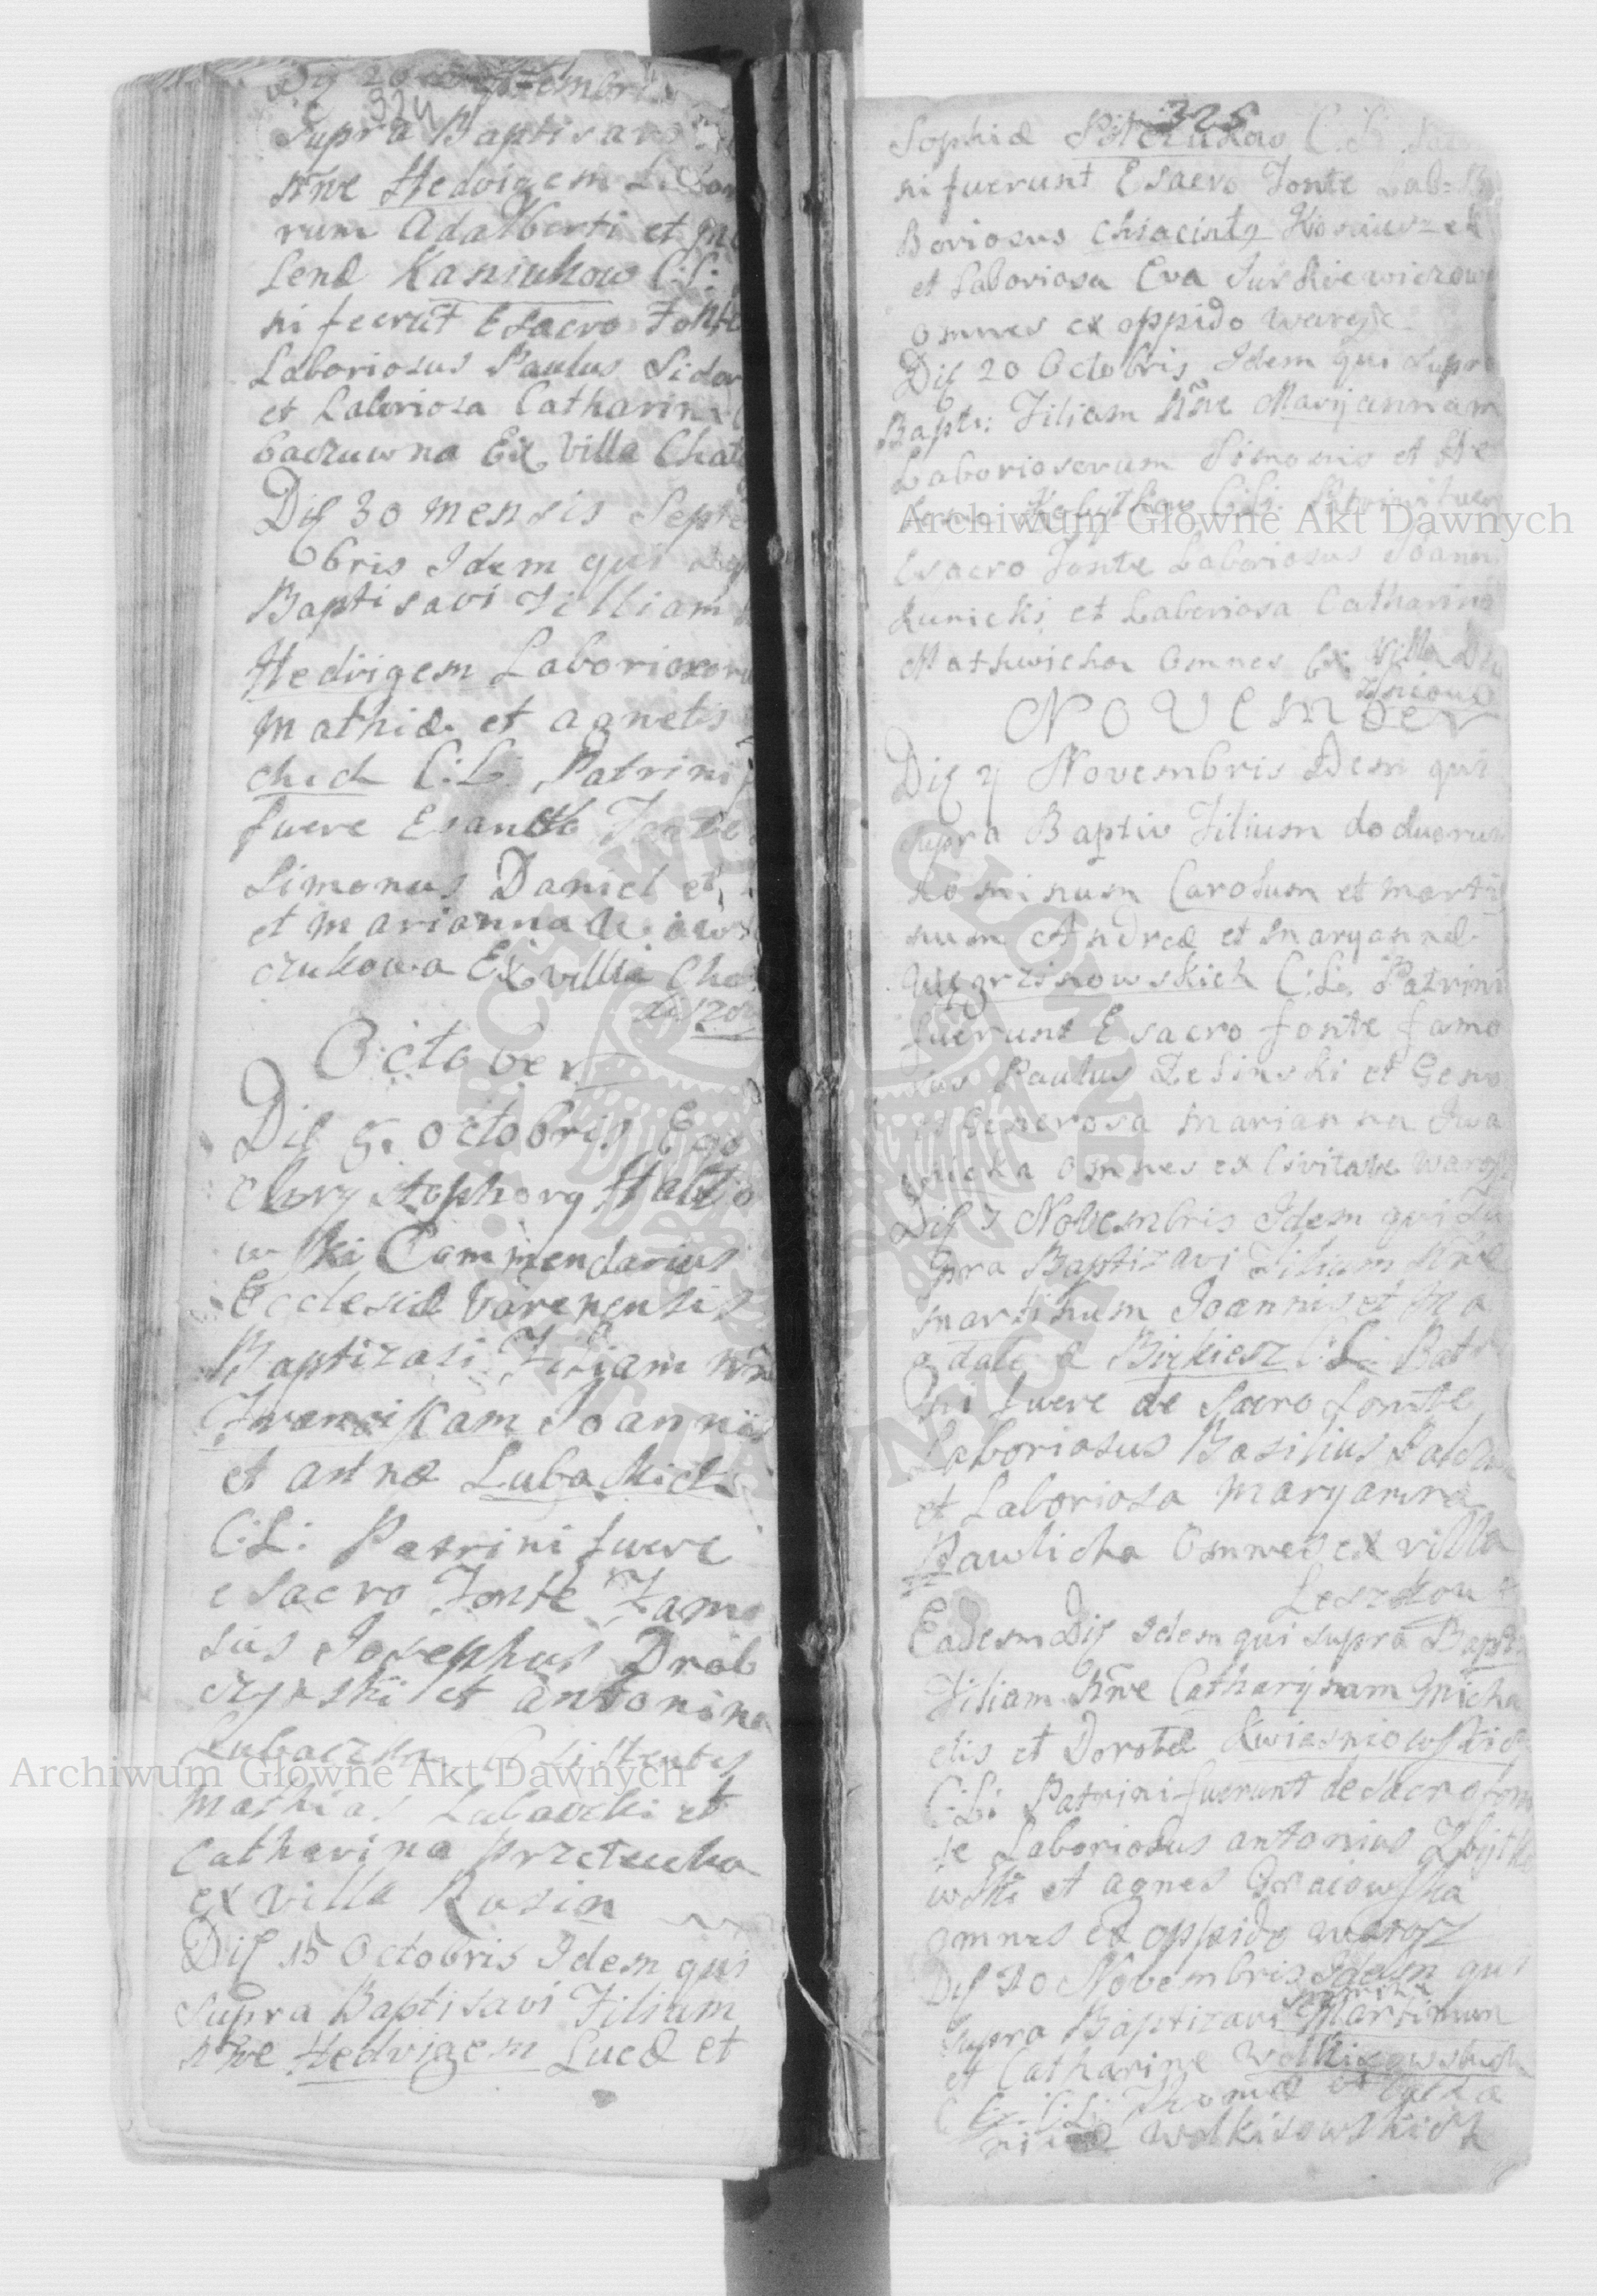 Die 20 Septembris
324
Supra Baptisavi
nne Hedvigem Labor
rum Adalberti et M
lenæ Kaniukow C:L:
ni fuerut E sacro Fonte
Laboriosus Paulus Sidor
et Laboriosa Catharina
baczuwna Ex Villa Chat
Die 30 mensis Septe
bris Idem qui sup
Baptisavi Filliam
Hedvigem Laboriosoru
Mathiæ et Agnetis
chich C:L: Patrini
fuere E sancto Fonte
Simonus Daniel et
et Marianna
czukowa Ex villia Cho

October
Die 5. Octobris Ego
Chrystophorg Halko
wski Commendarius
Ecclesiæ Varenensis
Baptizavi Filiam nne
Franciscam Joannis
et Annæ Lubaskich
C:L: Patrini fuere
e Sacro Fonte Famo
sus Josephus Drab
czynski et Antonina
Lubaczka Assistentes
Mathias Lubaczki et
Catharina Przetucka
ex villa Rusin
Die 15 Octobris Idem qui
supra Baptisavi Filiam
nne Hedvigem Lucæ et
325
Sophiæ C:L:
ni fuerunt E sacro Fonte Lab=
Boriosus Chiacintg Kosciuszek
et Laboriosa Eva Jurkiewiczowa
omnes ex oppido Waręze
Die 20 Octobris Idem qui supra
Bapti: Filiam nne Maryannam
Laboriosorum Simonis et He
lenæ C:L: Patrini fuer
E sacro Fonte Laboriosus Joann
Kunicki et Laboriosa Catharina
Mathwicha Omnes Ex Villa

November
Die 4 Novembris Idem qui
supra Baptiv Filium do duorum
Nominum Carolum et Marti
num Andreæ et Maryannæ
Węgrzinowskich C:L: Patrini
fuerunt E sacro fonte famo
sus Paulus Zelinski et Geno
et Generosa Marianna Iwa
nicka Omnes ex Civitate Waręz
Die 7 Novembris Idem qui Su
pra Baptizavi Filium nne
Martinum Joannis et Ma
gdalenæ Birkiesz C:L: Patr
ni fuere de Sacro fonte
Laboriosus Basilius
et Laboriosa Maryanna
Pawlicha Omnes ex villa
Leszkow
Eadem Die Idem qui supra Bapti
Filiam nne Catharynam Micha
elis et Dorotæ Kwiasniowskich
C:L: Patrini fuerunt de Sacro fon
te Laboriosus Antonius Zbytko
wski et Agnes Graiowska
omnes ex oppido Waręz
Die 10 Novembris Idem qui
supra Baptizavi Martinum
et Catharine Wolkisowskich
C:L: Thomæ et
Wolkisowskich
Archiwum Główne Akt Dawnych
Archiwum Główne Akt Dawnych
ARCHIWUM GŁÓWNE AKT DAWNYCH